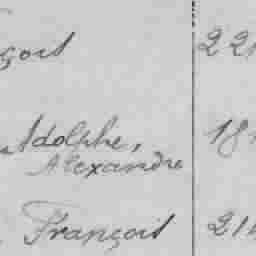 çois 221
Adolphe, 181
Alexandre
François 214